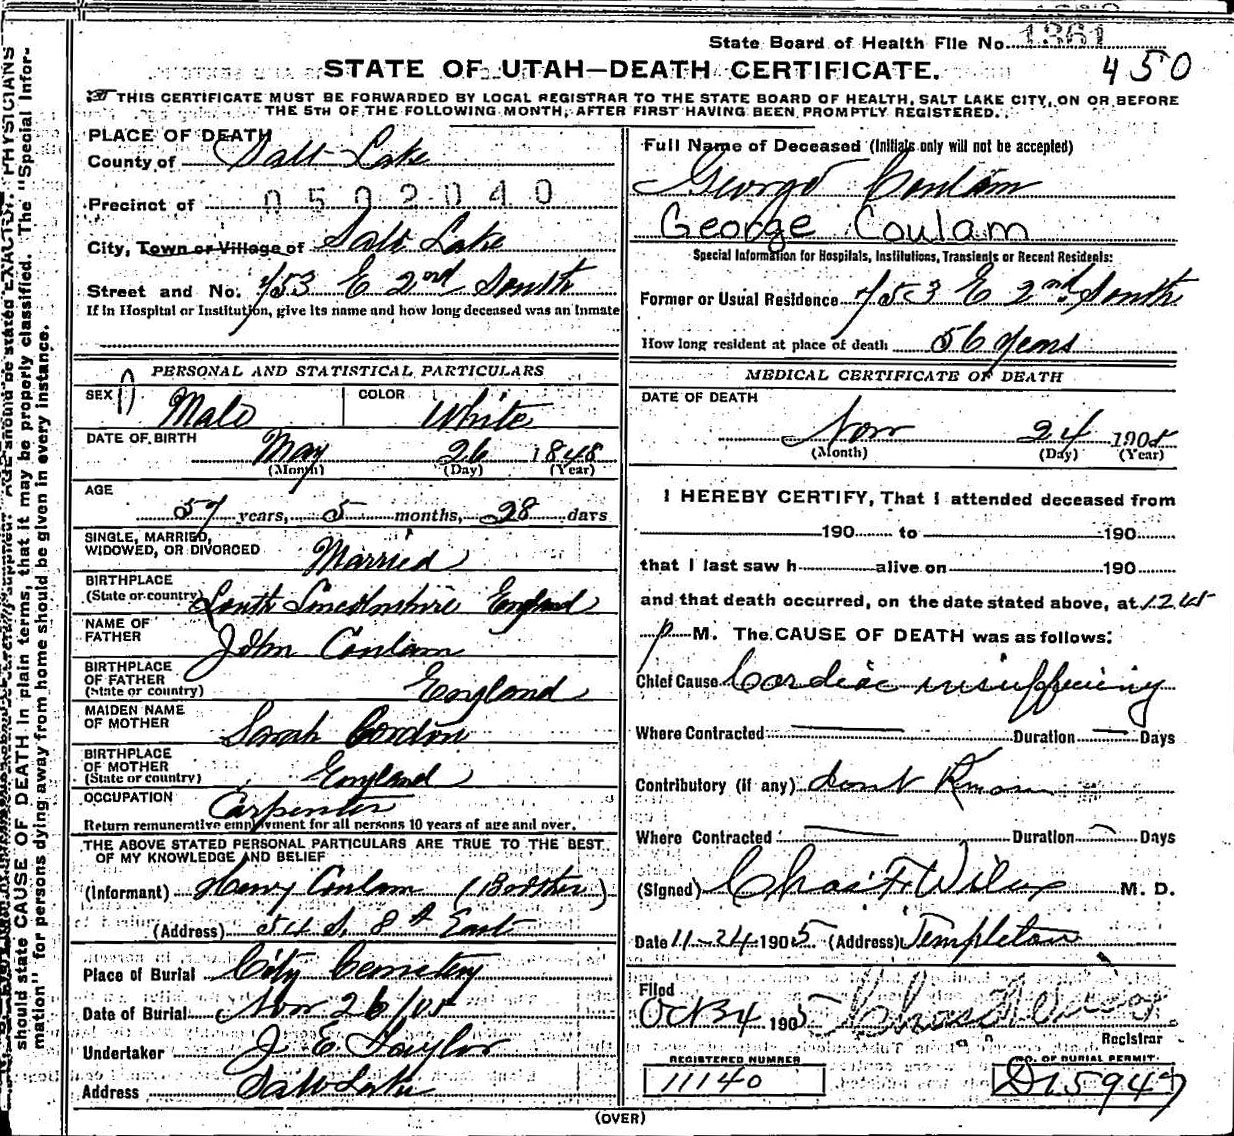 State Board of Health File No. 1361
450
STATE OF UTAH—DEATH CERTIFICATE.
THIS CERTIFICATE MUST BE FORWARDED BY LOCAL REGISTRAR TO THE STATE BOARD OF HEALTH, SALT LAKE CITY, ON OR BEFORE
THE 5TH OF THE FOLLOWING MONTH, AFTER FIRST HAVING BEEN PROMPTLY REGISTERED.
PLACE OF DEATH
County of Salt Lake
Precinct of 0502040
City, Town or Village of Salt Lake
Street and No. 753 E 2nd South
If in Hospital or Institution, give its name and how long deceased was an inmate
PERSONAL AND STATISTICAL PARTICULARS
SEX Male COLOR White
DATE OF BIRTH May 26 1848
(Month) (Day) (Year)
AGE
57 years, 5 months, 28 days
SINGLE, MARRIED,
WIDOWED, OR DIVORCED Married
BIRTHPLACE
(State or country) South Lincolnshire England
NAME OF
FATHER John Coulam
BIRTHPLACE
OF FATHER
(State or country) England
MAIDEN NAME
OF MOTHER Sarah Cordon
BIRTHPLACE
OF MOTHER
(State or country) England
OCCUPATION Carpenter
Return remunerative employment for all persons 10 years of age and over.
THE ABOVE STATED PERSONAL PARTICULARS ARE TRUE TO THE BEST
OF MY KNOWLEDGE AND BELIEF
(Informant) Henry Coulam (Brother)
(Address) 54 S. 8th East
Place of Burial City Cemetery
Date of Burial Nov 26/05
Undertaker J E Taylor
Address Salt Lake
Full Name of Deceased (Initials only will not be accepted)
George Coulam
George Coulam
Special Information for Hospitals, Institutions, Transients or Recent Residents:
Former or Usual Residence 753 E 2nd South
How long resident at place of death 56 years
MEDICAL CERTIFICATE OF DEATH
DATE OF DEATH
Nov 24 1905
(Month) (Day) (Year)
I HEREBY CERTIFY, That I attended deceased from
190 to 190
that I last saw h alive on 190
and that death occurred, on the date stated above, at 12 45
p M. The CAUSE OF DEATH was as follows:
Chief Cause Cardiac insufficiency
Where Contracted Duration Days
Contributory (if any) dont Know
Where Contracted Duration Days
(Signed) Chas F Wilcox M. D.
Date 11-24 1905 (Address) Templeton
Filed
Oct 34 1905
Registrar
REGISTERED NUMBER
11140
NO. OF BURIAL PERMIT
D15947
(OVER)
should state CAUSE OF DEATH in plain terms, that it may be properly classified. The "Special Infor-
mation" for persons dying away from home should be given in every instance.